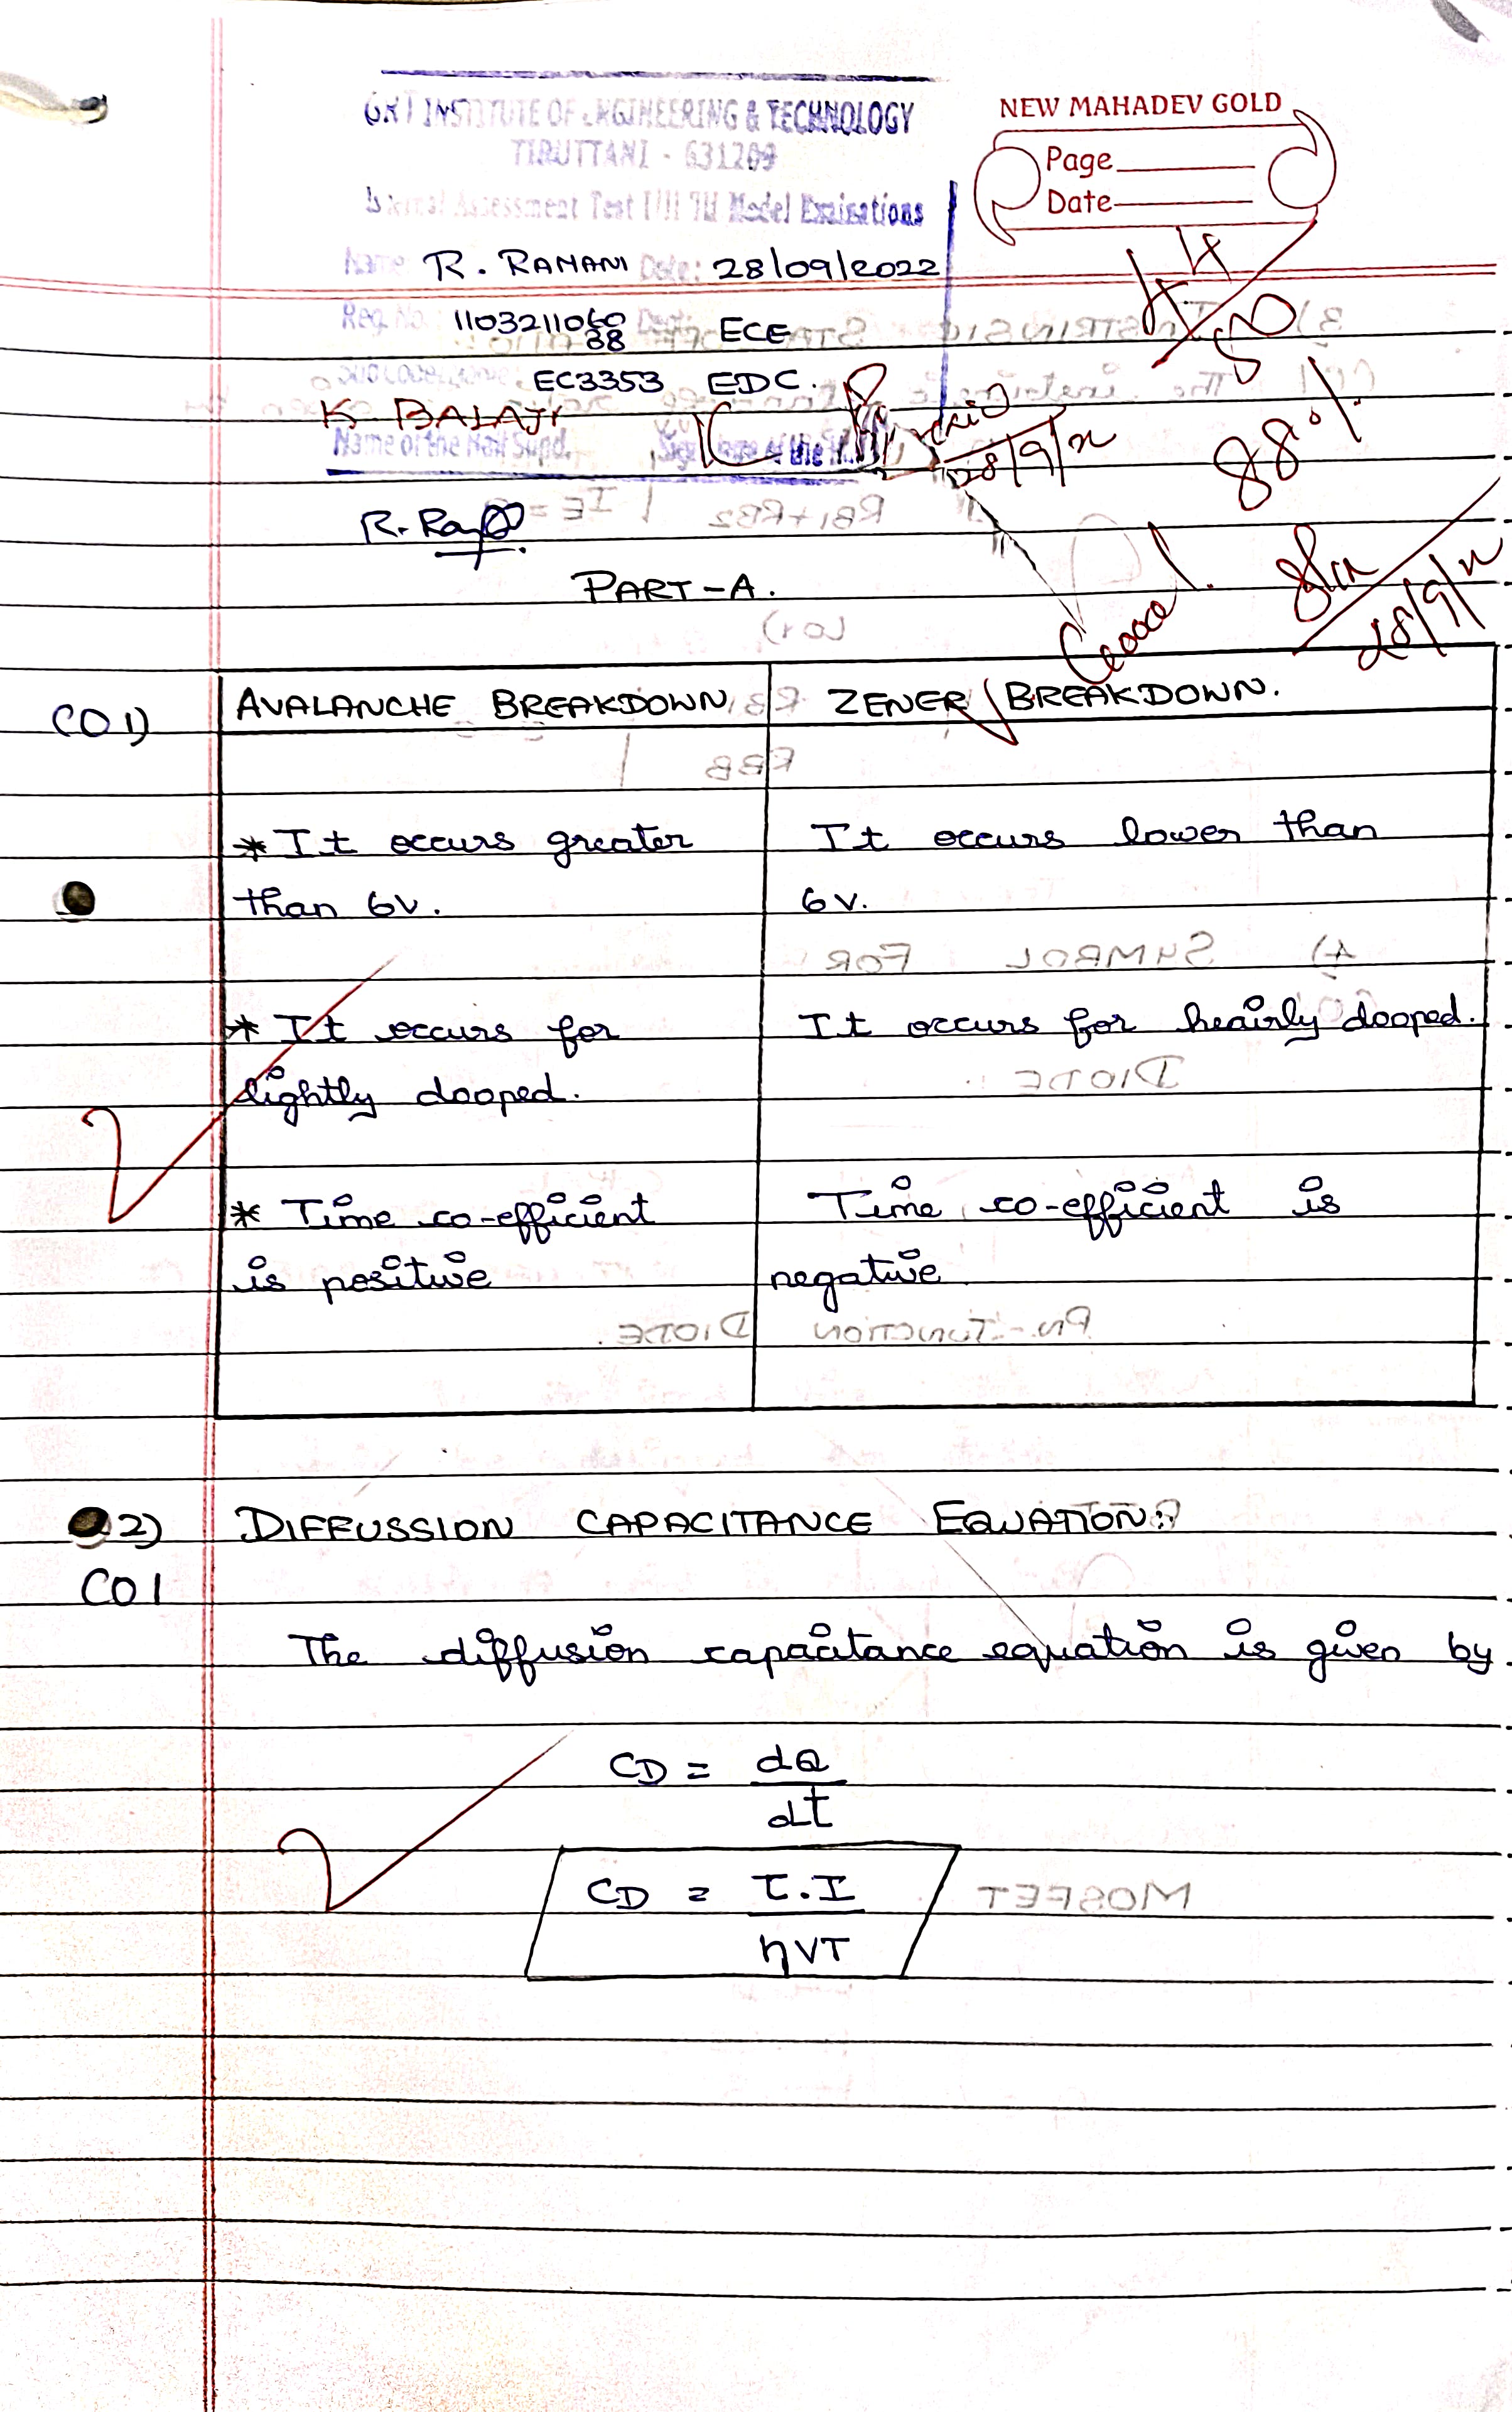 GRT INSTITUTE OF ENGINEERING & TECHNOLOGY
TIRUTTANI - 631209
Internal Assessment Test I/II/III Model Exminations
NEW MAHADEV GOLD
Page
Date
Name: R. RAMANI Date: 28/09/2022
Reg. No. : 1103211060 Dept: ECE
38
EC3353 EDC.
K BALAJI
Name of the Hall Supd.
44
50
88%
28/9/22
Good
28/9/22
PART-A.
CO 1) AVALANCHE BREAKDOWN ZENER BREAKDOWN.
* It occurs greater It occurs lower than
than 6V. 6V.
* It occurs for It occurs for heavily dooped.
lightly dooped.
* Time co-efficient Time co-efficient is
is positive negative
2) DIFFUSSION CAPACITANCE EQUATION:
CO 1
The diffusion capacitance equation is given by
CD = dQ
dt
CD = τ.I
ηVT